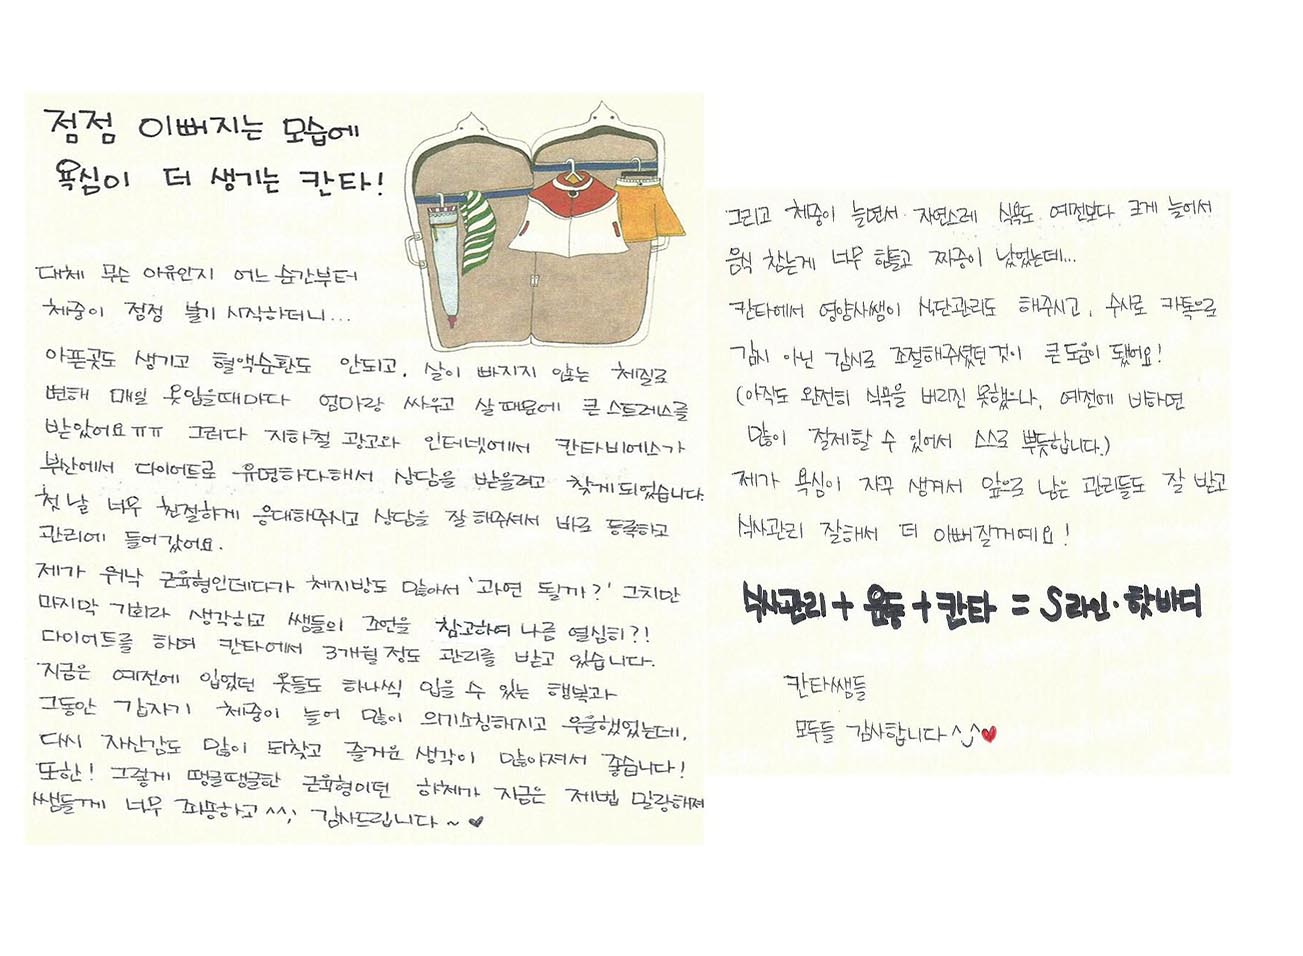 점점 이뻐지는 모습에
욕심이 더 생기는 칸타!
대체 무슨 이유인지 어느 순간부터
체중이 점점 불기 시작하더니...
아픈곳도 생기고 혈액순환도 안되고, 살이 빠지지 않는 체질로
변해 매일 옷입을때마다 엄마랑 싸우고 살때문에 큰 스트레스를
받았어요ㅠㅠ 그러다 지하철 광고와 인터넷에서 칸타비에스가
부산에서 다이어트로 유명하다해서 상담을 받을려고 찾게되었습니다.
첫날 너무 친절하게 응대해주시고 상담을 잘 해주셔서 바로 등록하고
관리에 들어갔어요.
제가 워낙 근육형인데다가 체지방도 많아서 '과연 될까?' 그치만
마지막 기회라 생각하고 쌤들의 조언을 참고하여 나름 열심히?!
다이어트를 하며 칸타에서 3개월정도 관리를 받고 있습니다.
지금은 예전에 입었던 옷들도 하나씩 입을 수 있는 행복과
그동안 갑자기 체중이 늘어 많이 의기소침해지고 우울했었는데,
다시 자신감도 많이 되찾고 즐거운 생각이 많아져서 좋습니다!
또한! 그렇게 땡글땡글한 근육형이던 하체가 지금은 제법 말랑해져
쌤들께 너무 죄송하고^^; 감사드립니다~♥
그리고 체중이 늘면서 자연스레 식욕도 예전보다 크게 늘어서
음식 참는게 너무 힘들고 짜증이 났었는데...
칸타에서 영양사쌤이 식단관리도 해주시고, 수시로 카톡으로
감시 아닌 감시로 조절해주셨던것이 큰도움이 됐어요!
(아직도 완전히 식욕을 버리진 못했으나, 예전에 비하면
많이 절제할 수 있어서 스스로 뿌듯합니다.)
제가 욕심이 자꾸 생겨서 앞으로 남은 관리들도 잘 받고
식사관리 잘해서 더 이뻐질거예요!
식사관리 + 운동 + 칸타 = S라인·핫바디
칸타쌤들
모두들 감사합니다^^♥